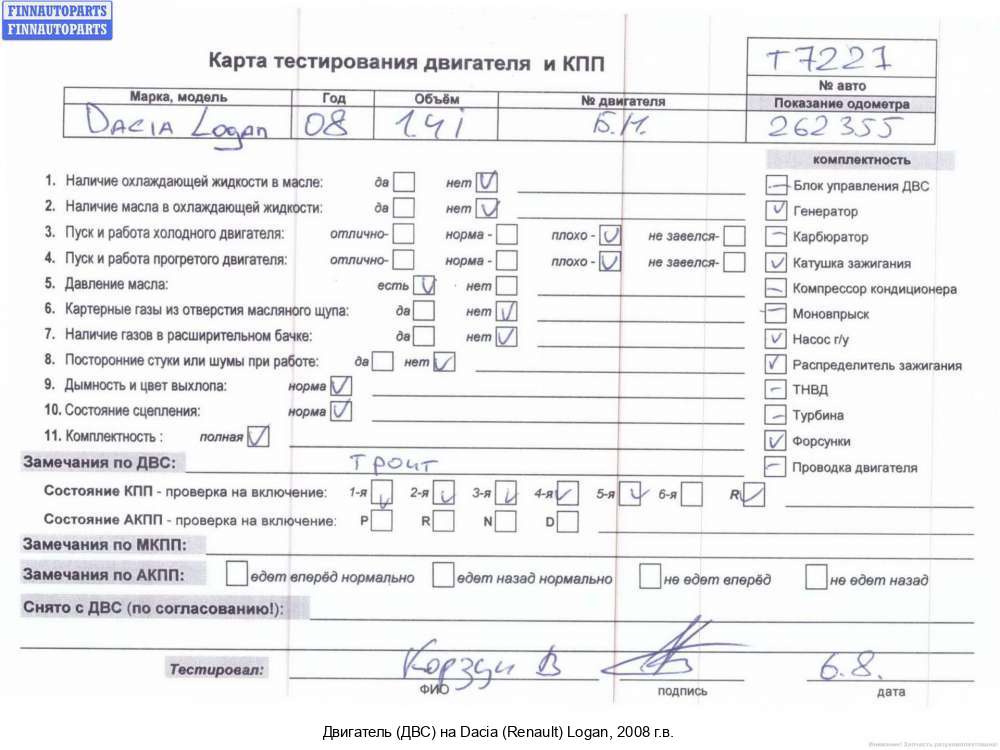 FINNAUTOPARTS
FINNAUTOPARTS
Карта тестирования двигателя и КПП
T7227
№ авто
Марка, модель Год Объём № двигателя Показание одометра
DACIA Logan 08 1.4i Б.Н. 262355
комплектность
1. Наличие охлаждающей жидкости в масле: да нет
Блок управления ДВС
2. Наличие масла в охлаждающей жидкости: да нет
Генератор
3. Пуск и работа холодного двигателя: отлично- норма - плохо - не завелся-
Карбюратор
4. Пуск и работа прогретого двигателя: отлично- норма - плохо - не завелся-
Катушка зажигания
5. Давление масла: есть нет
Компрессор кондиционера
6. Картерные газы из отверстия масляного щупа: да нет
Моновпрыск
7. Наличие газов в расширительном бачке: да нет
Насос г/у
8. Посторонние стуки или шумы при работе: да нет
Распределитель зажигания
9. Дымность и цвет выхлопа: норма
ТНВД
10. Состояние сцепления: норма
Турбина
11. Комплектность : полная
Форсунки
Замечания по ДВС: троит
Проводка двигателя
Состояние КПП - проверка на включение: 1-я 2-я 3-я 4-я 5-я 6-я R
Состояние АКПП - проверка на включение: P R N D
Замечания по МКПП:
Замечания по АКПП: едет вперёд нормально едет назад нормально не едет вперёд не едет назад
Снято с ДВС (по согласованию!):
Тестировал: Корзун В 6.8.
ФИО подпись дата
Двигатель (ДВС) на Dacia (Renault) Logan, 2008 г.в.
Внимание! Запчасть разукомплектована!